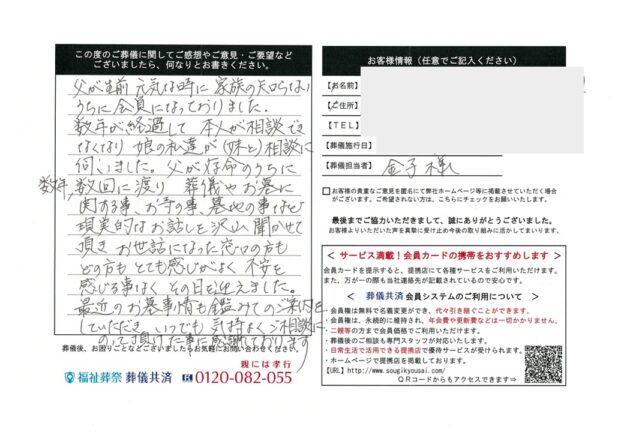 この度のご葬儀に関してご感想やご意見・ご要望など
ございましたら、何なりとお書きください。
父が生前 元気な時に 家族の知らない
うちに会員になっておりました。
数年が経過して 本人が相談でき
なくなり 娘の私達が(妹と)相談に
伺いました。父が存命のうちに
数年、数回に渡り 葬儀やお墓に
関する事、お寺の事、墓地の事など
現実的なお話しを沢山聞かせて
頂き お世話になった窓口の方も
どの方も とても感じがよく 不安を
感じる事なく その日を迎えました。
最近のお墓事情も鑑みてのご案内を
していただき、いつでも気持よくご相談に
のって頂けた事に感謝しております
葬儀後、お困りごとなどございましたらお気軽にお問い合わせください。
親には孝行
福祉葬祭 葬儀共済 0120-082-055
お客様情報（任意でご記入ください）
【お名前】
【ご住所】
【TEL】
【葬儀施行日】
【葬儀担当者】 金子様
□お客様の貴重なご意見を匿名にて弊社ホームページ等に掲載させていただく場合
がございます。ご希望されない方は、こちらにチェックをお願いいたします。
最後までご協力いただきまして、誠にありがとうございました。
お客様よりいただいた声を真摯に受け止め今後の取り組みに活かしてまいります。
< サービス満載！会員カードの携帯をおすすめします >
会員カードを提示すると、提携店にて各種サービスをご利用いただけます。
また、万が一の際も当社連絡先が記載されているので安心です。
< 葬儀共済 会員システムのご利用について >
・会員権は無料で名義変更ができ、代々引き継ぐことができます。
・会員権は、永続的に維持され、年会費や更新費などは一切かかりません。
・二親等の方まで会員価格でご利用いただけます。
・葬儀後のご相談も専門スタッフが対応いたします。
・日常生活で活用できる提携店で優待サービスが受けられます。
・ホームページで提携店を掲載しております。
【URL】http://www.sougikyousai.com/
QRコードからもアクセスできます⇒